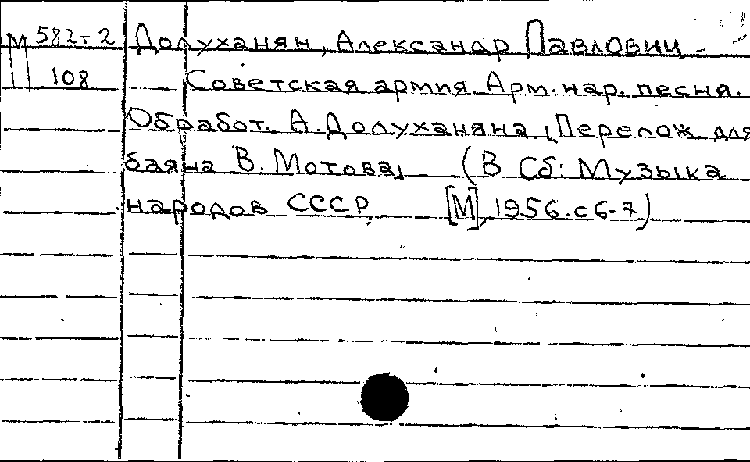 М 582-2 Долуханян, Александр Павлович
108 Советская армия. Арм. нар. песня.
Обработ. А. Долуханяна, Перелож для
баяна В. Мотова, (В Сб: Музыка
народов СССР, [М], 1956. с 6-7)